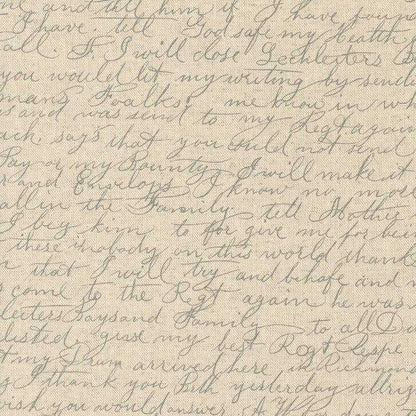 and tell him if I have
I have. tell God safe my health
all. I will close
you would let my writing by send
Foalks! me know in
and was send to my Regt again
says that you could not send
Pay or my Bounty. I will make it
and Envelops I know no mor
all in the Family tell Mother
I beg him to for give me for bein
there is nobody on this world thank
that I will try and behafe and
come to the Regt again he was
Leeters Pays and Family to all
listed, give my best Regt Respe
my Drum arrived here in Richmond
I thank you yesterday
wish you would answer